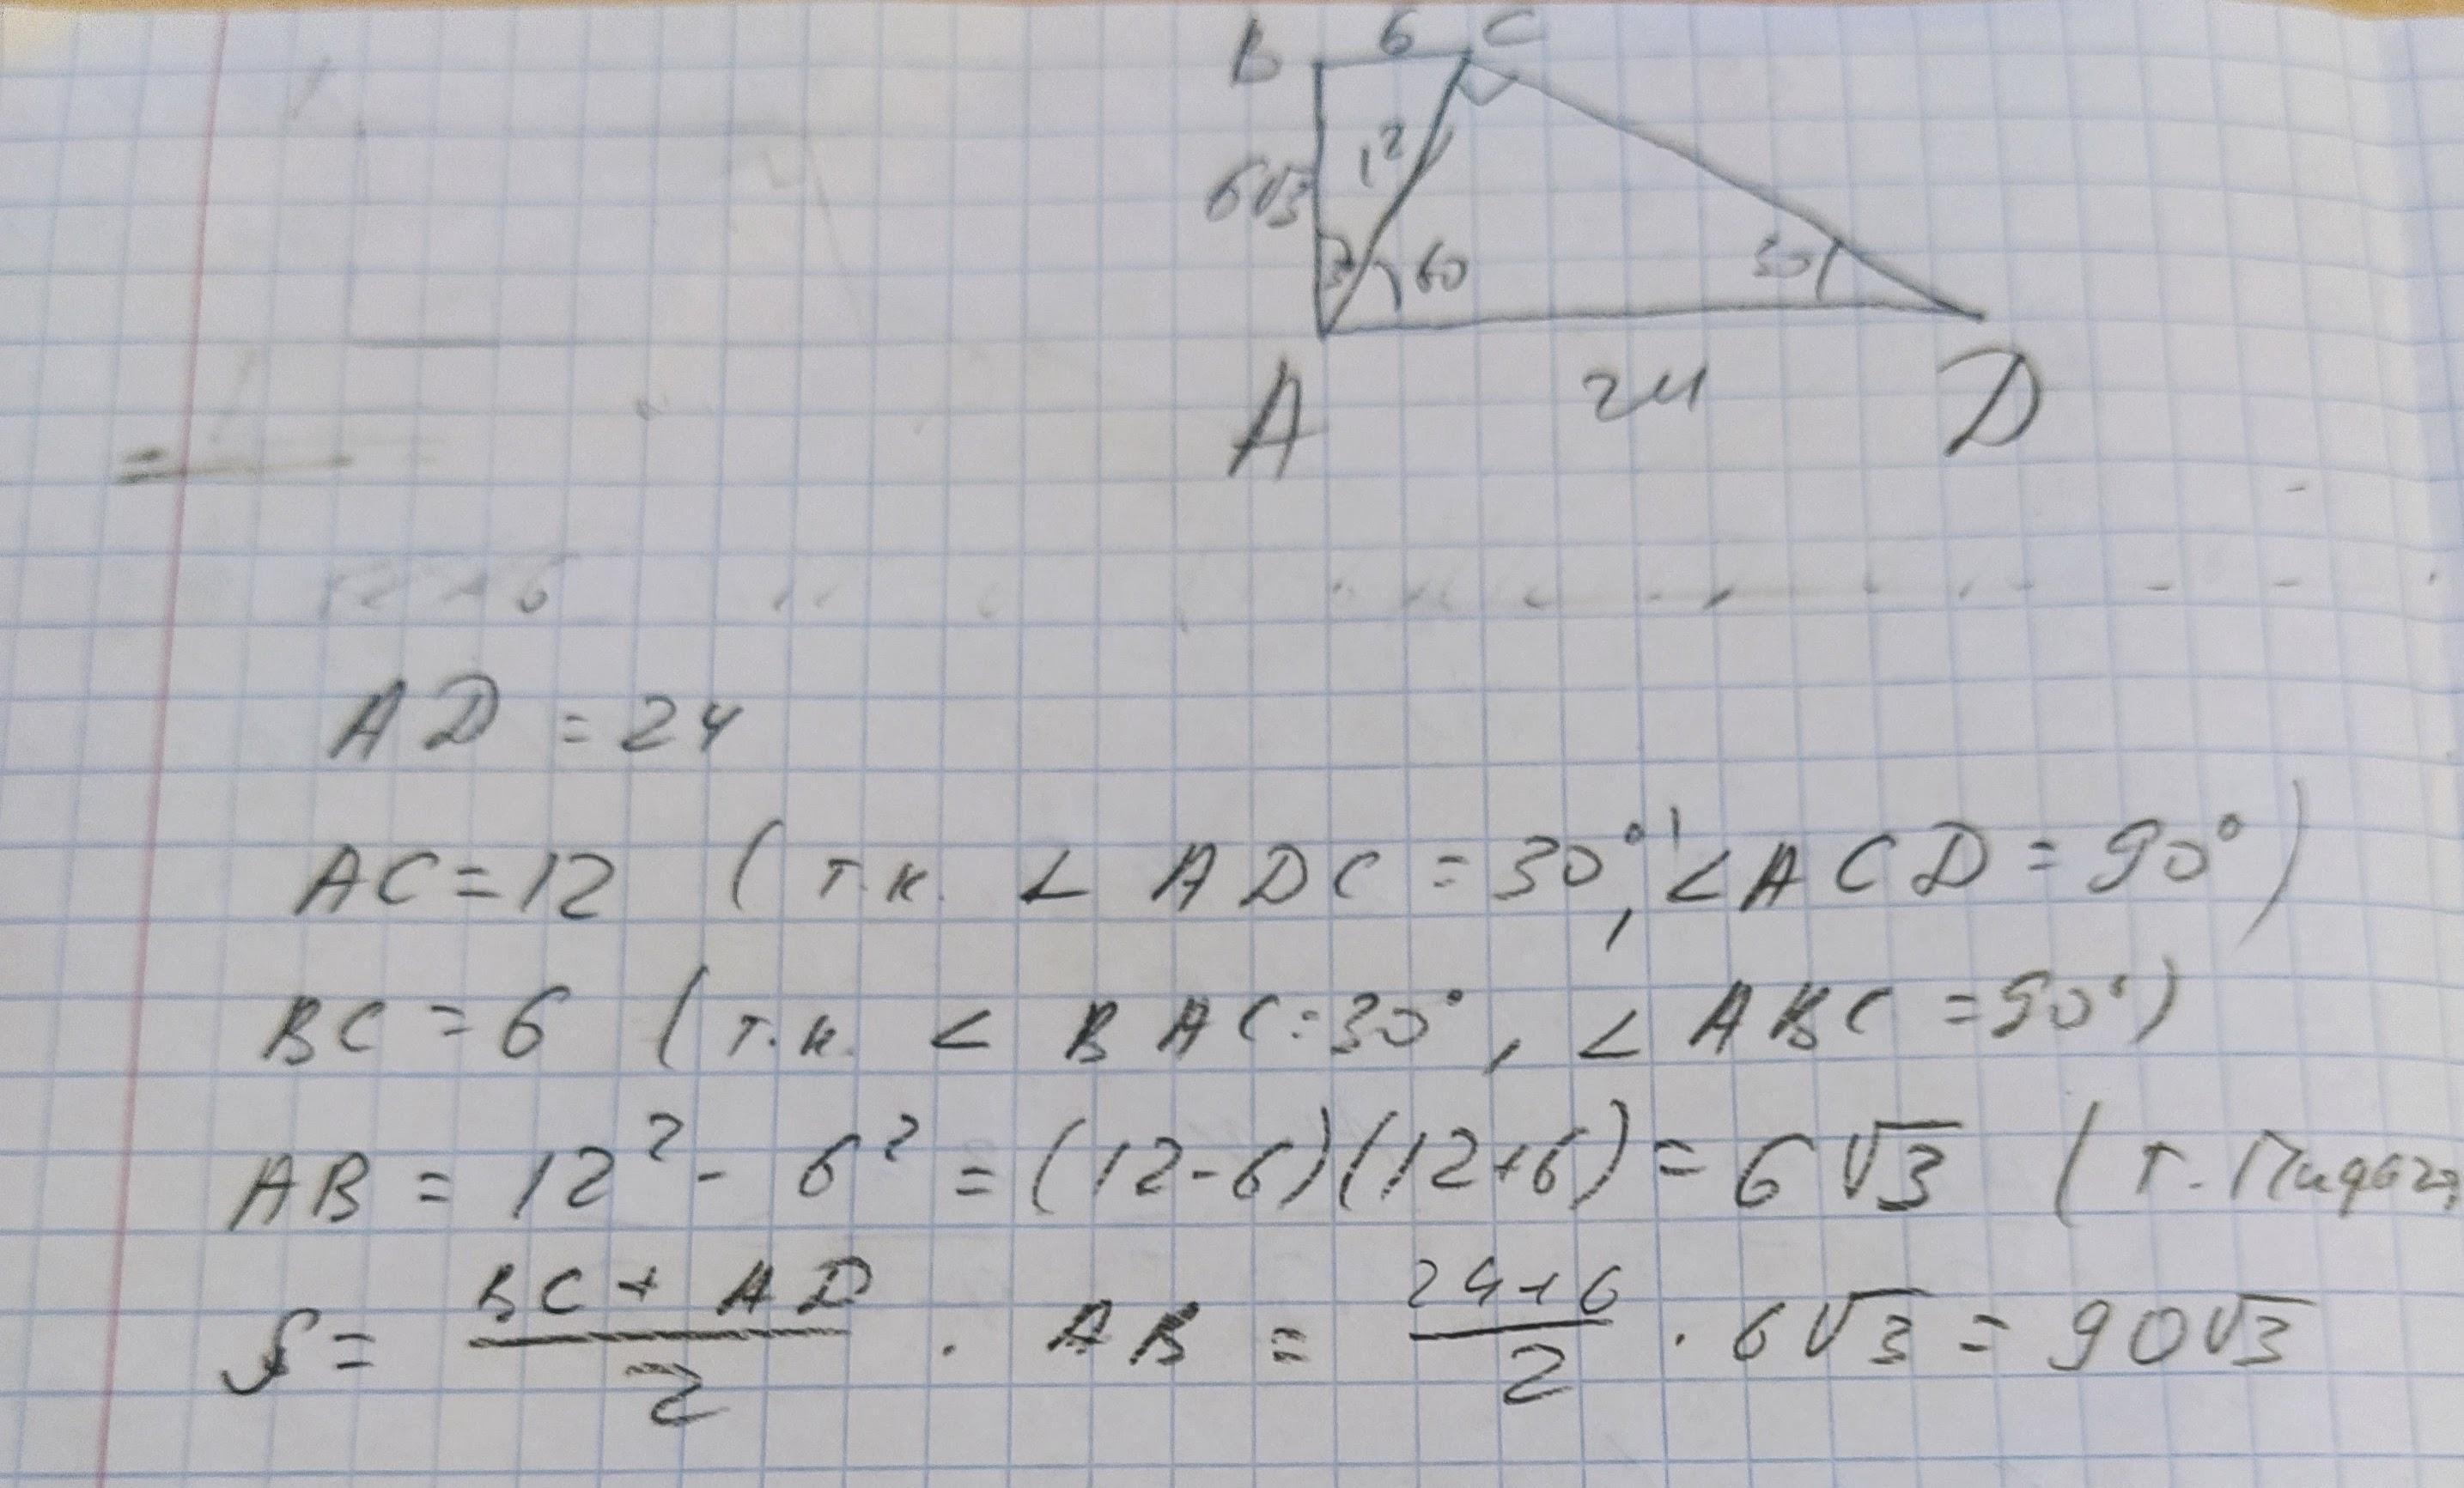 B 6 C
12
6√3
60 30
A 24 D
AD = 24
AC = 12 (т.к. ∠ ADC = 30°, ∠ACD = 90°)
BC = 6 (т.к. ∠ BAC = 30°, ∠ ABC = 90°)
AB = 12² - 6² = (12-6)(12+6) = 6√3 (т.
S = BC + AD / 2 · AB = 24+6 / 2 · 6√3 = 90√3